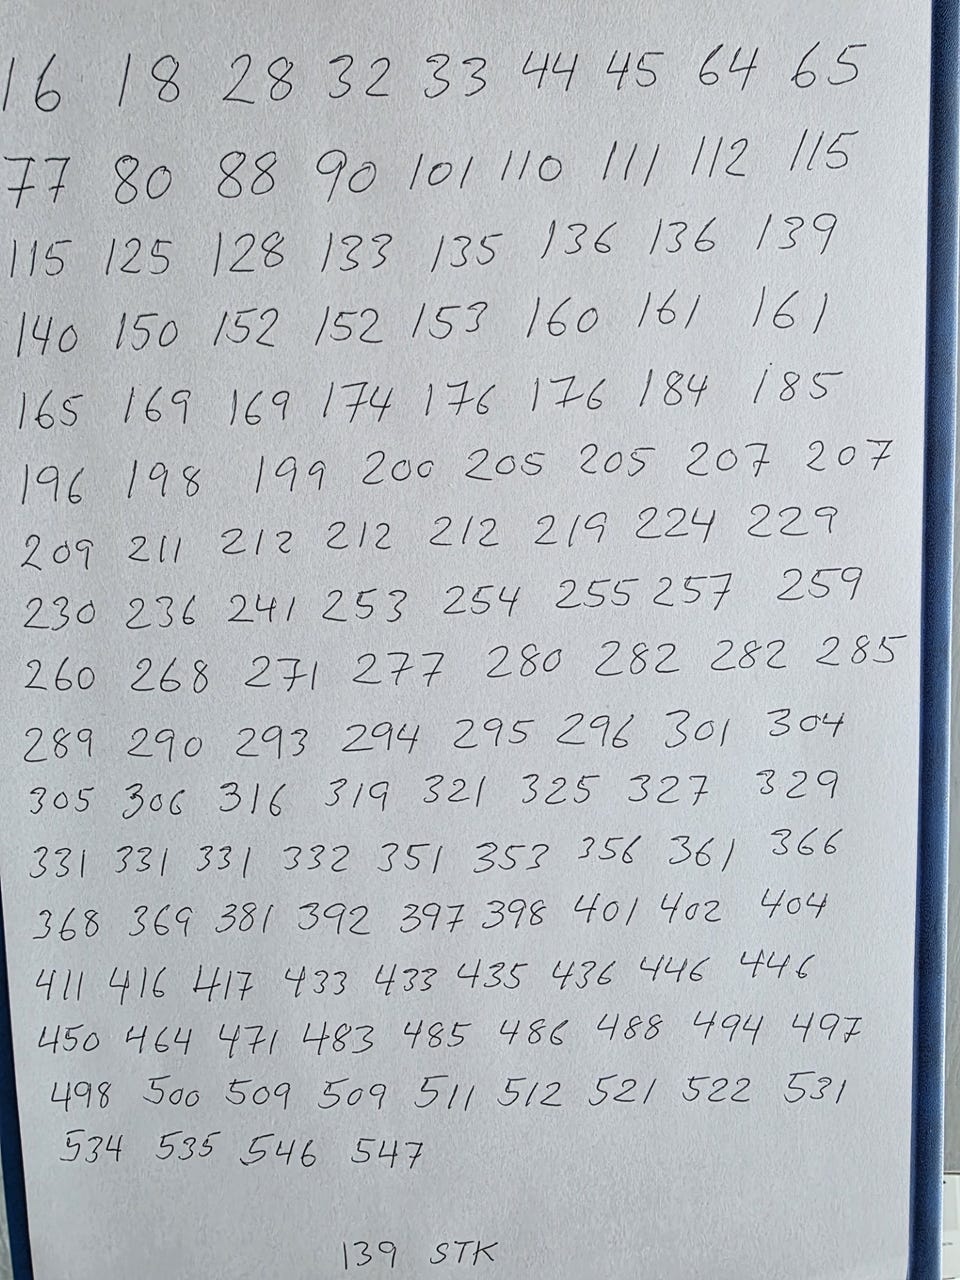 16 18 28 32 33 44 45 64 65
77 80 88 90 101 110 111 112 115
115 125 128 133 135 136 136 139
140 150 152 152 153 160 161 161
165 169 169 174 176 176 184 185
196 198 199 200 205 205 207 207
209 211 212 212 212 219 224 229
230 236 241 253 254 255 257 259
260 268 271 277 280 282 282 285
289 290 293 294 295 296 301 304
305 306 316 319 321 325 327 329
331 331 331 332 351 353 356 361 366
368 369 381 392 397 398 401 402 404
411 416 417 433 433 435 436 446 446
450 464 471 483 485 486 488 494 497
498 500 509 509 511 512 521 522 531
534 535 546 547
139 STK